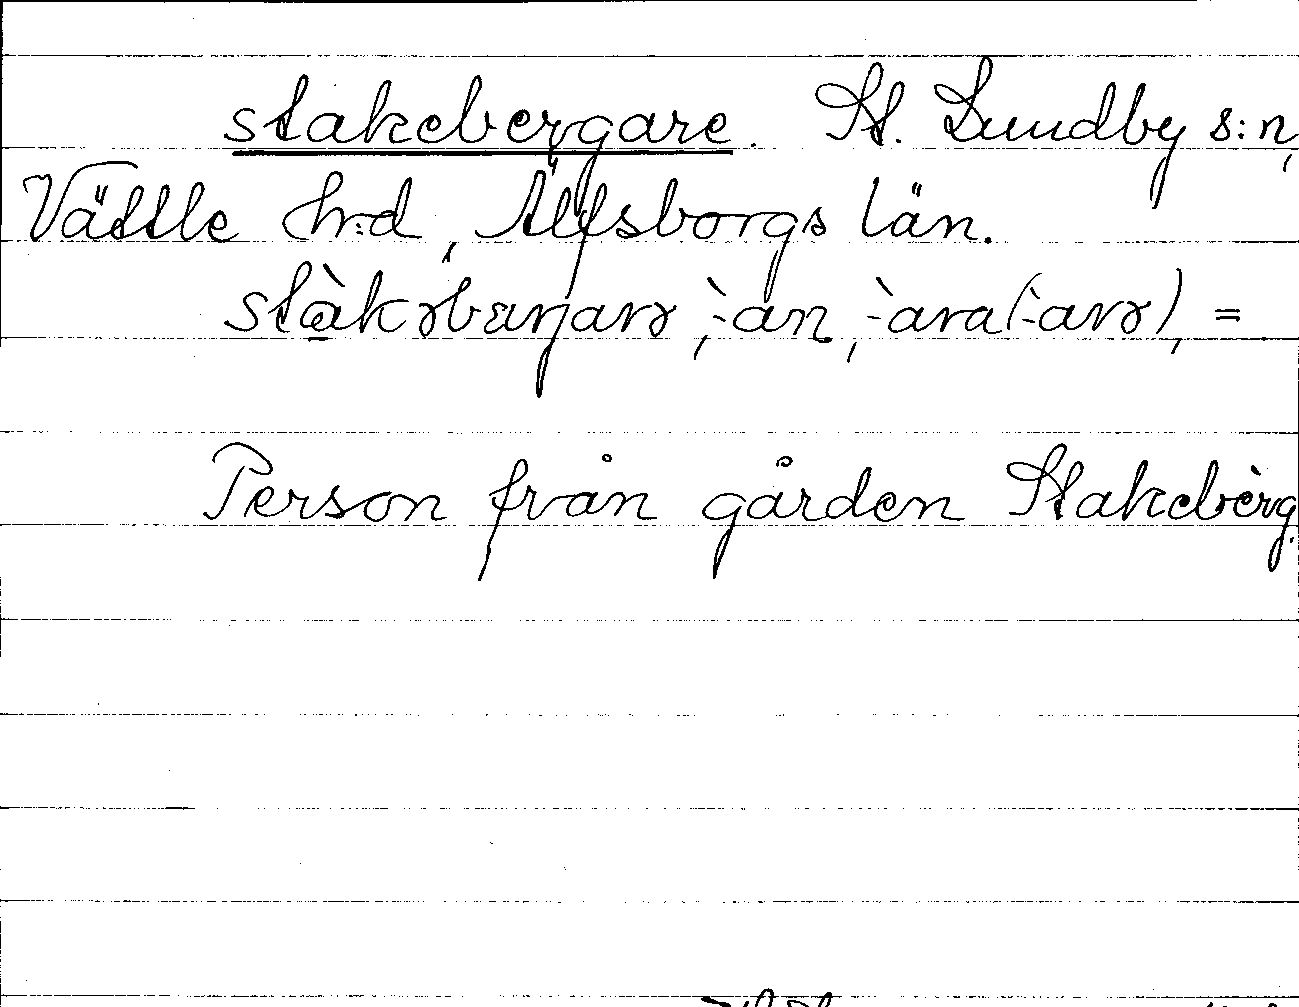 stakebergare. St. Lundby s:n,
Vättle h:d, Älfsborgs län.
stàkəbærjarə, -̀an, -̀ara(-̀arə), =
Person från gården Stakebèrg.